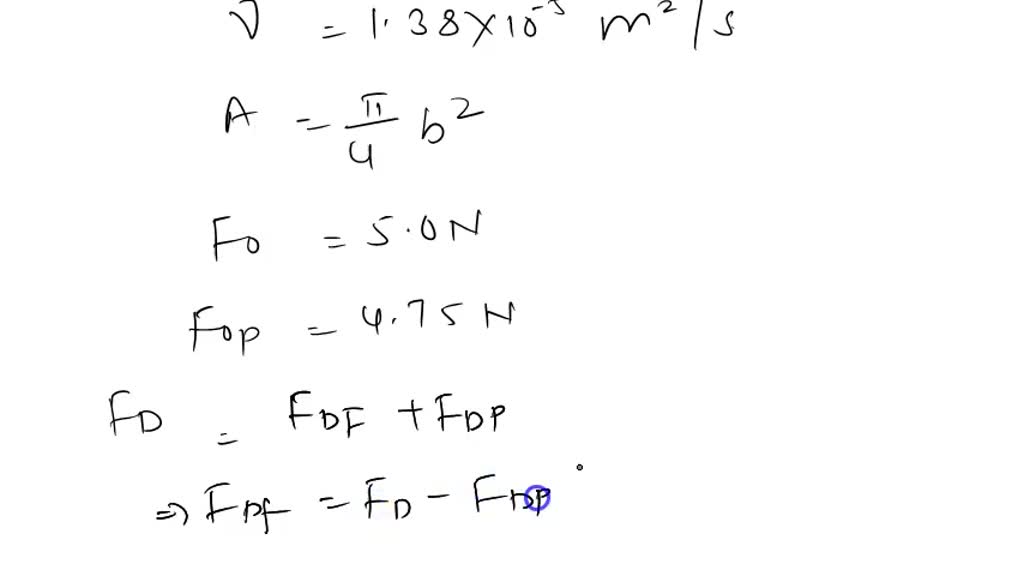 ν = 1.38×10⁻⁵ m²/s
A = π/4 b²
F₀ = 5.0N
F₀p = 4.75 N
F_D = F_DF + F_DP
⇒ F_DF = F_D − F_DP